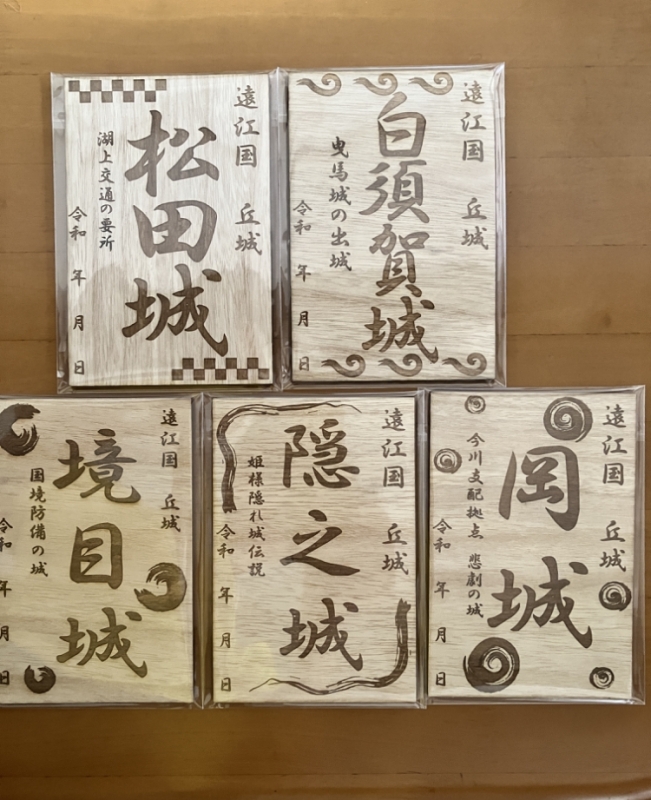 遠江国　丘城
松田城
湖上交通の要所
令和　年　月　日
遠江国　丘城
白須賀城
曳馬城の出城
令和　年　月　日
遠江国　丘城
境目城
国境防備の城
令和　年　月　日
遠江国　丘城
隠之城
姫様隠れ城伝説
令和　年　月　日
遠江国　丘城
岡城
今川支配拠点　悲劇の城
令和　年　月　日